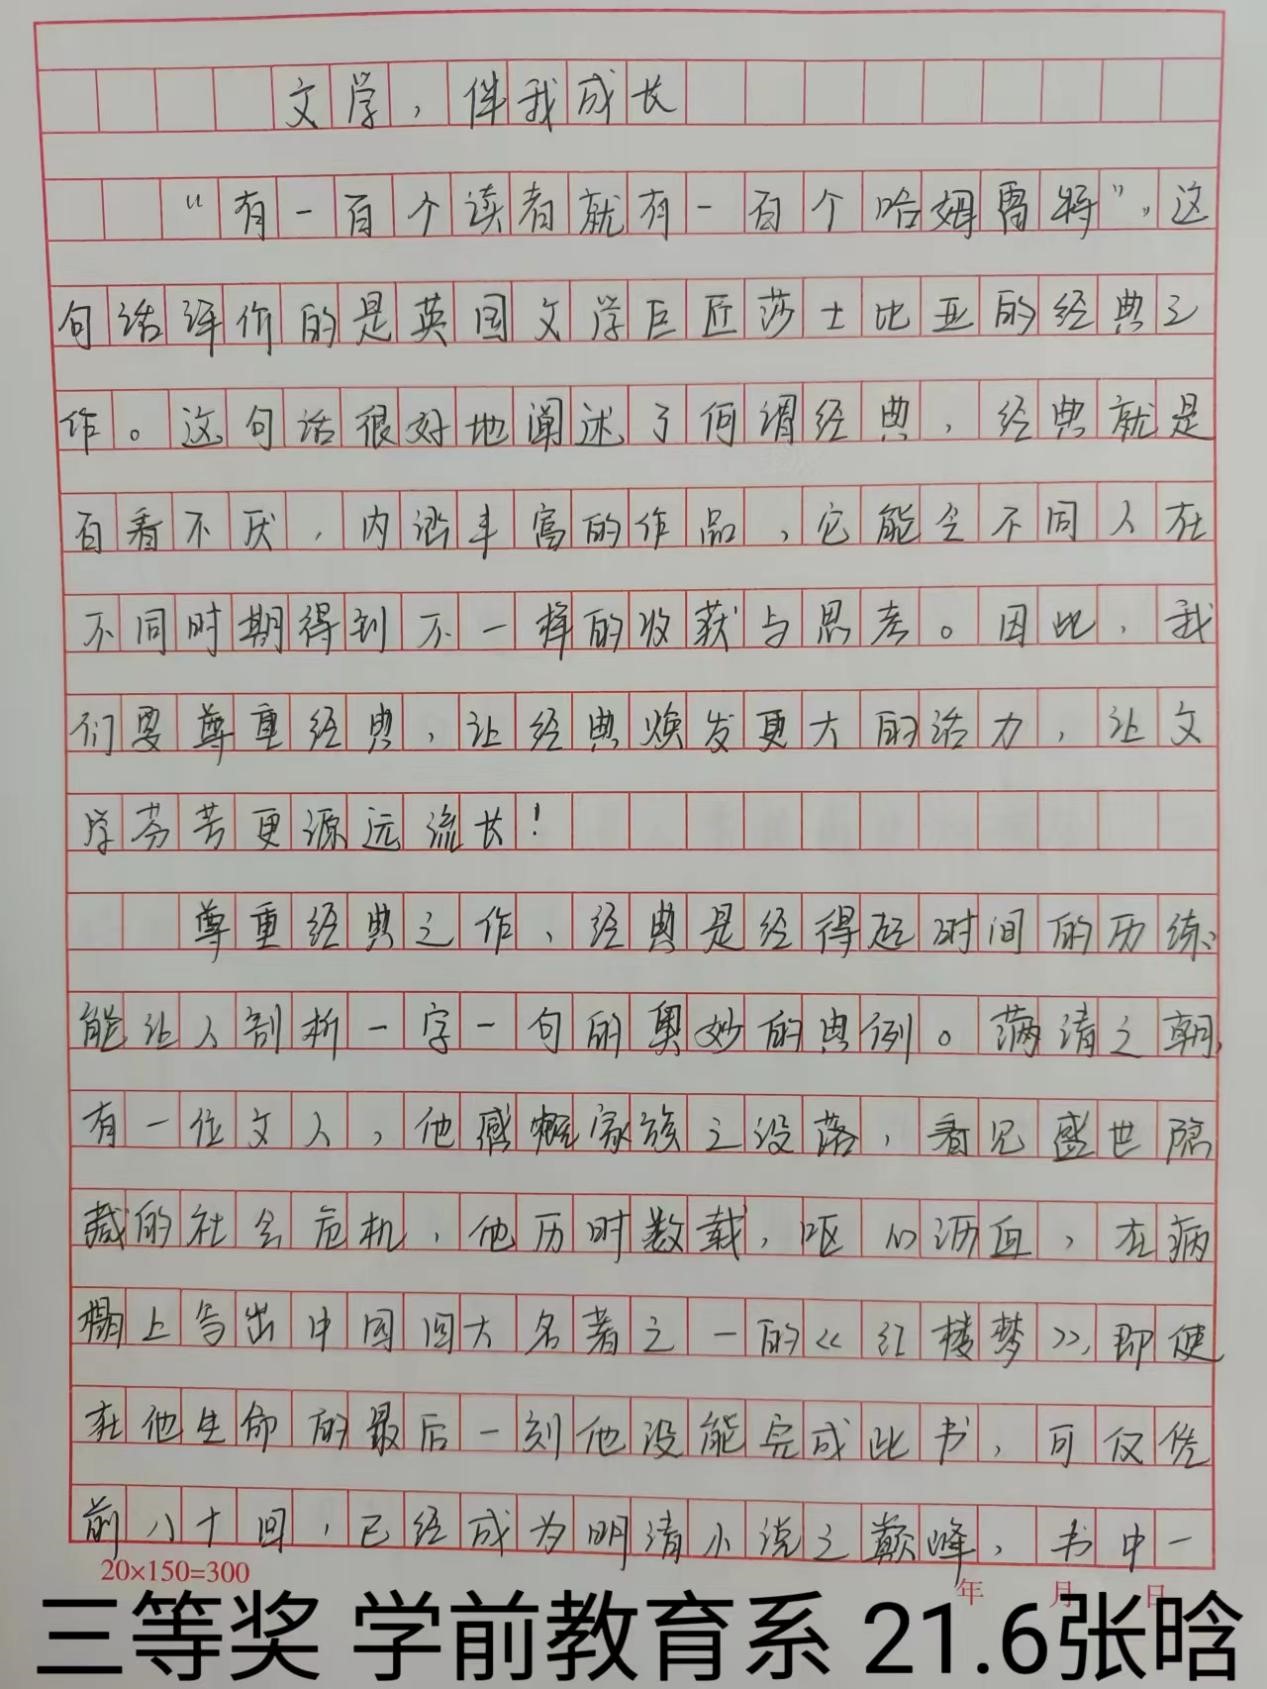 文学，伴我成长
“有一百个读者就有一百个哈姆雷特”，这
句话评价的是英国文学巨匠莎士比亚的经典之
作。这句话很好地阐述了何谓经典，经典就是
百看不厌，内涵丰富的作品，它能令不同人在
不同时期得到不一样的收获与思考。因此，我
们要尊重经典，让经典焕发更大的活力，让文
学芬芳更源远流长！
尊重经典之作、经典是经得起时间的历练、
能让人剖析一字一句的奥妙的典例。满清之朝，
有一位文人，他感慨家族之没落，看见盛世隐
藏的社会危机，他历时数载，呕心沥血，在病
榻上写出中国四大名著之一的《红楼梦》，即使
在他生命的最后一刻他没能完成此书，可仅凭
前八十回，已经成为明清小说之巅峰，书中一
20×150=300
年 月 日
三等奖 学前教育系 21.6张晗